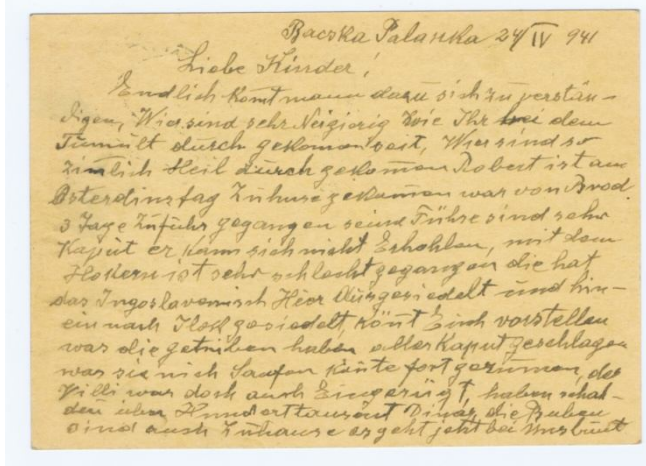 Bacska Palanka 24/IV 941
Liebe Kinder!
Endlich komt mann dazu sich zu verstän-
digen, Wir sind sehr Neigirig Wie Ihr bei dem
Tumult durch gekomen seit, Wier sind so
zimlich Heil durch gekomen Robert ist am
Osterdinstag Zuhause gekamen war von Brod
3 Tage Zufuhs gegangen seine Führe sind sehr
Kaput er kann sich nicht Erhohlen, mit dem
ist sehr schlecht gegangen die hat
das Jugoslavenisch Heer Ausgesiedelt und hin-
ein nach Ilok gesiedelt, könt Eich vorstellen
was die getriben haben alles Kaput geschlagen
was sie nich Saufen konte fort gerümen, der
Villi war doch auch Eingerügt, haben schat-
den über Hunderttausent Dinar, die Buben
sind auch Zuhause es geht jetzt bei uns bunt